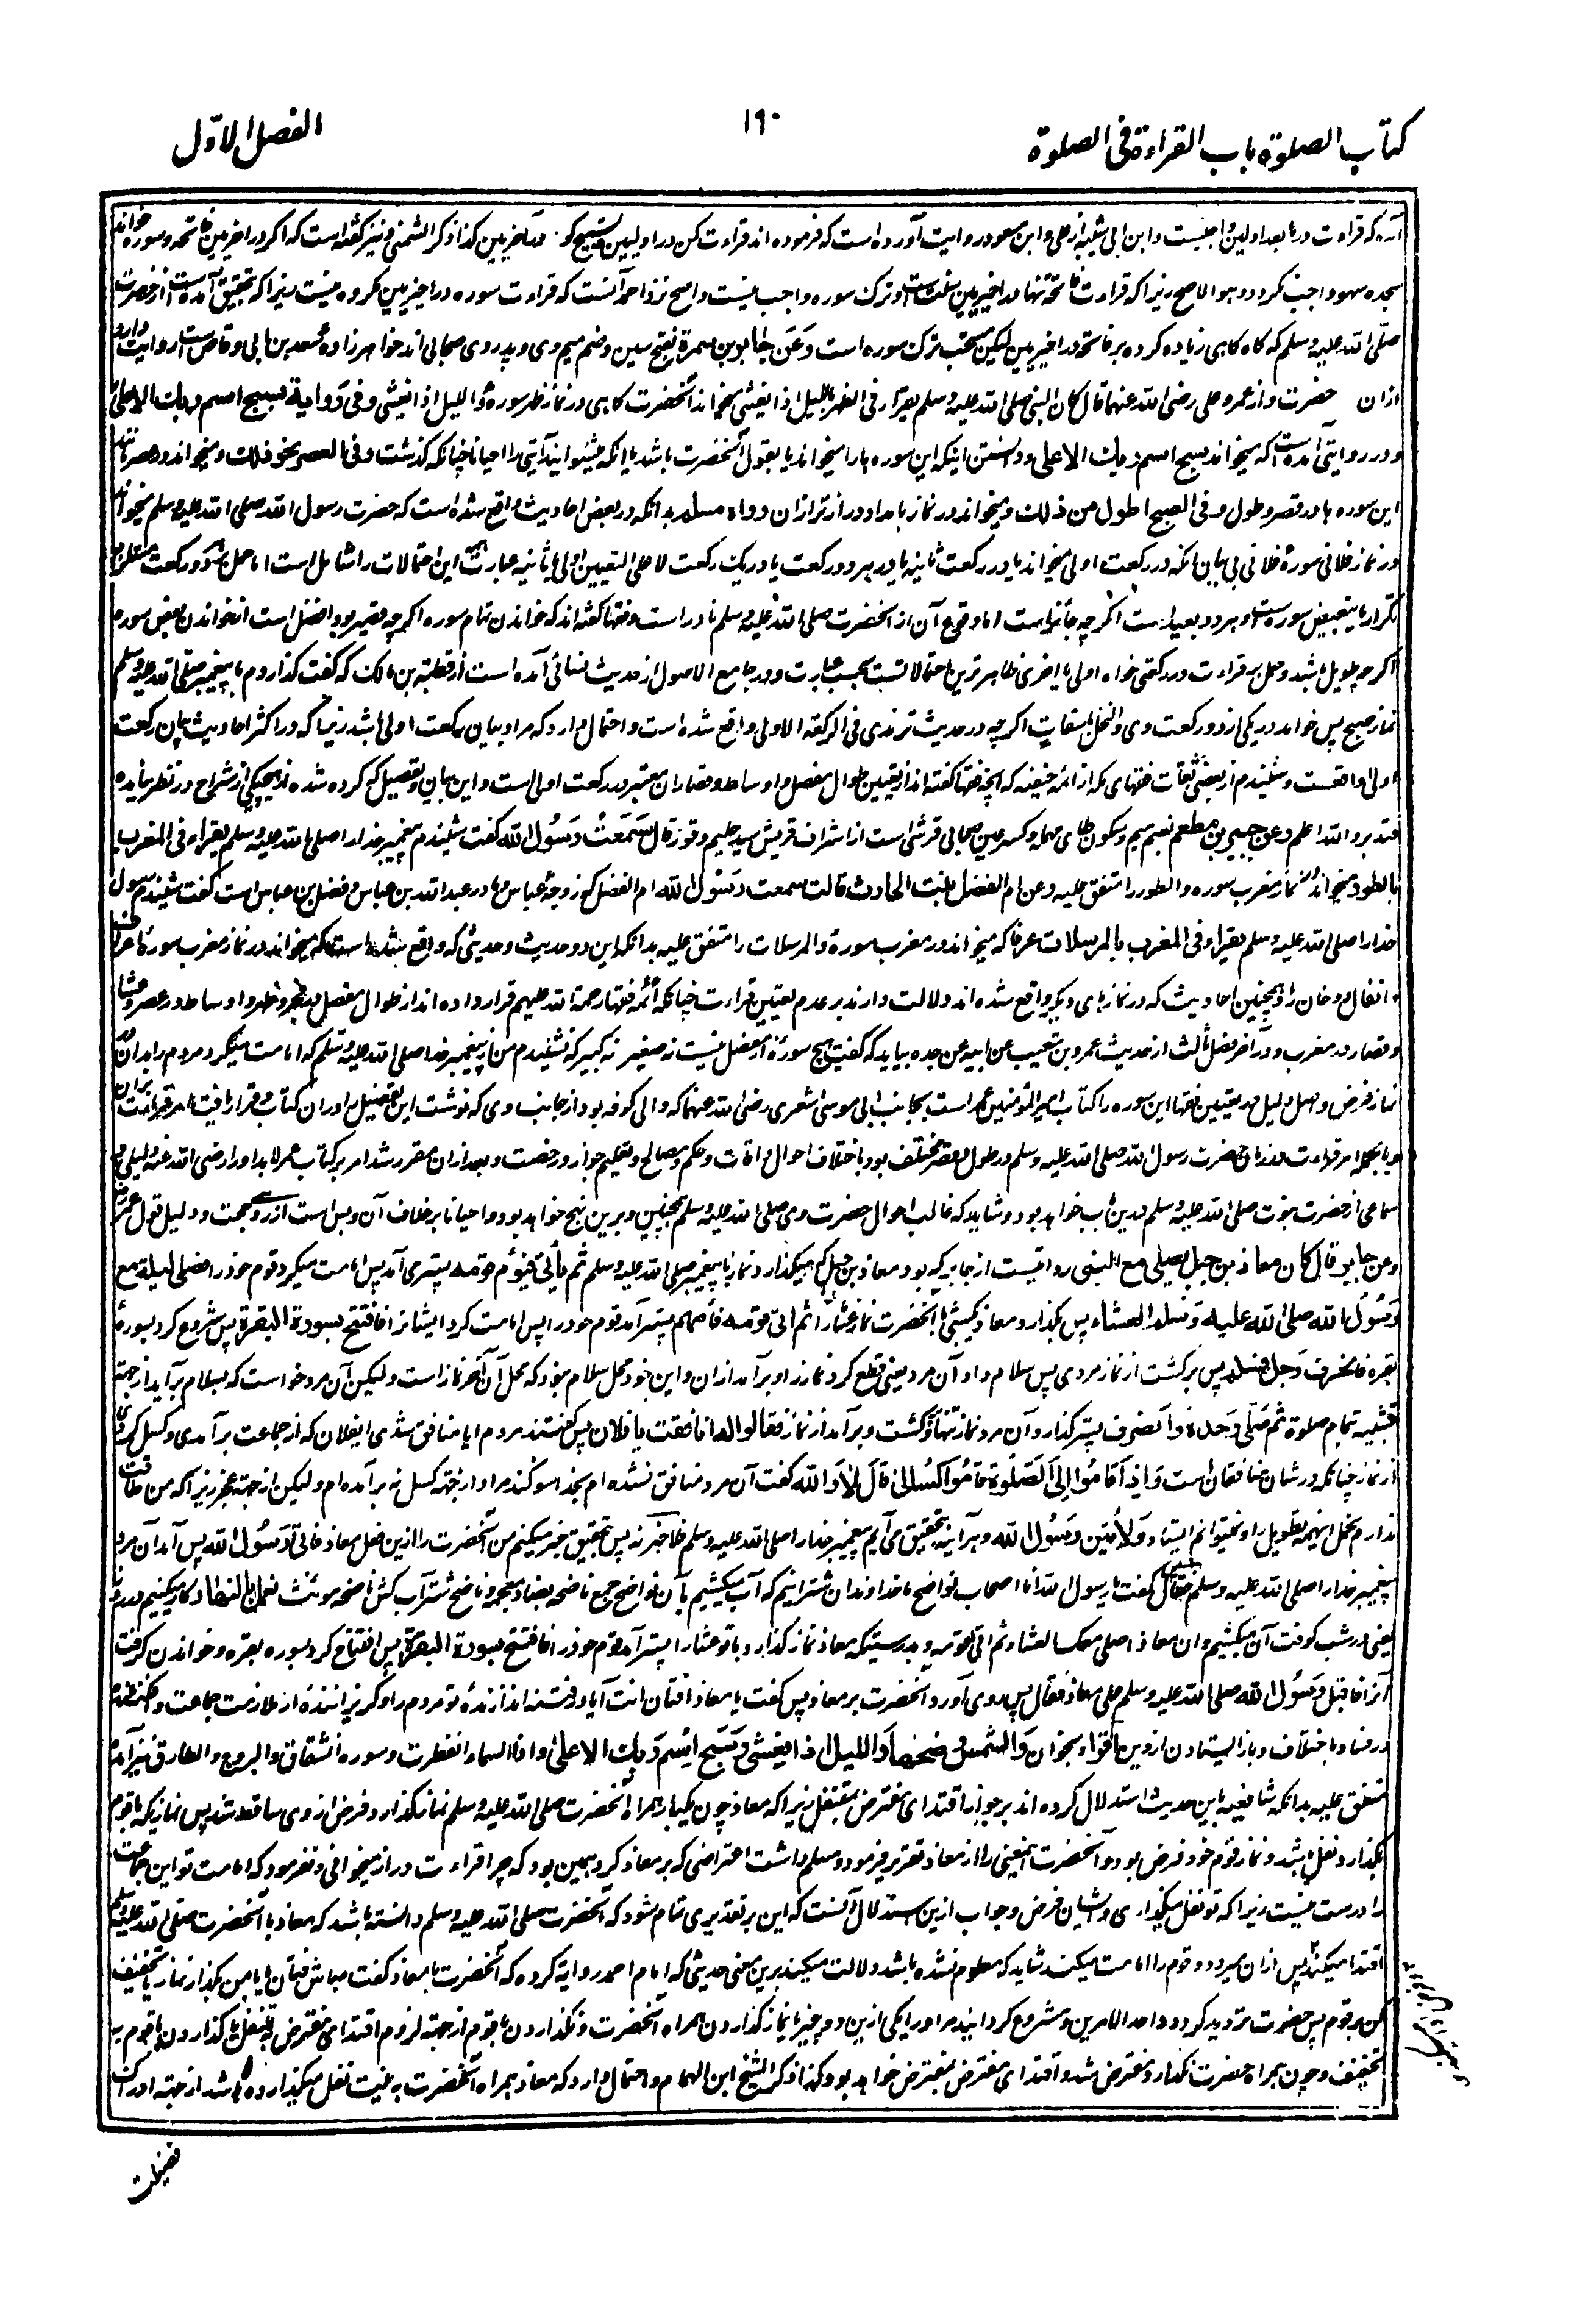 کتاب الصلوٰة باب القراءة فی الصلوٰة
۱۹۰
الفصل الاوّل
آنکه قراءت در ما بعد اولیین واجبست و ابن ابی شیبه از علی و ابن مسعود روایت آورده است که فرموده اند قراءت کن در اولیین و تسبیح کو در آخریین کذا ذکر الشمنی و نیز گفته است که اکر در اخریین فاتحه و سوره خواند
سجده سهو واجب نگردد و هو الاصح زیرا که قراءت فاتحه تنها در اخریین سنت است و ترک سوره واجب نیست و اصح نزد احمد آنست که قراءت سوره در اخیریین مکروه نیست زیرا که بتحقیق آمده است از حضرت
صلی الله علیه وسلم که کاه کاهی زیاده کرده بر فاتحه در اخیریین لیکن مستحب ترک سوره است وَعَن جابر بن سمرة بفتح سین و ضم میم وی و پدر وی صحابی اند خواهرزاده سعد بن ابی وقاص است روایت دارد
ازان حضرت و از عمر و علی رضی الله عنهما قال کان النبی صلی الله علیه وسلم یقرأ فی الظهر باللیل اذا یغشی میخواند آنحضرت کاهی در نماز ظهر سورهٔ واللیل اذا یغشی و فی روایة بسبح اسم ربک الاعلی
و در روایتی آمده است که میخواند سبح اسم ربک الاعلی و دانستن اینکه این سوره ها را میخواند یا بقول آنحضرت باشد یا آنکه میشنوانید آیتی را احیانا چنانکه گذشت و فی العصر نحو ذلک و میخواند در عصر مانند
این سوره ها در قصر و طول و فی الصبح اطول من ذلک و میخواند در نماز بامداد دراز تر ازان رواه مسلم بدانکه در بعض احادیث واقع شده است که حضرت رسول الله صلی الله علیه وسلم میخواند
در نماز فلانی سورهٔ فلانی بی بیان آنکه در رکعت اولی میخواند یا در رکعت ثانیه یا در هر دو رکعت یا در یک رکعت لا علی التعیین اولی یا ثانیه عبارت این احتمالات را شامل است اما حمل بر هر دو رکعت مستلزم
تکرار یا تبعیض سورتست و هر دو بعید است اگر چه جائز است اما وقوع آن از آنحضرت صلی الله علیه وسلم نادر است و فقها گفته اند که خواندن تمام سوره اکر چه قصیر بود افضل است از خواندن بعض سوره
اکر چه طویل باشد و حمل بر قراءت در رکعتی خواه اولی یا اخری ظاهر ترین احتمالاتست بحسب عبارت و در جامع الاصول از حدیث نسائی آمده است از قطبة بن مالک که گفت گذاردم با پیغمبر صلی الله علیه وسلم
نماز صبح پس خواند در یکی از دو رکعت وی والنخل باسقات اکر چه در حدیث ترمذی فی الرکعة الاولی واقع شده است و احتمال دارد که مراد بیان رکعت اولی باشد زیرا که در اکثر احادیث بیان رکعت
اولی واقعست و شنیدم از بعض ثقات فقهای مکه از ائمه حنفیه که آنچه فقها گفته اند از تعیین طوال مفصل و اوساط و قصار ان معتبر در رکعت اولی است و این بیان و تفصیل که کرده شده از هیچ یکی از شراح در نظر نیامده
فتدبر والله اعلم وعن جبیر بن مطعم بضم میم و سکون طای مهمله و کسر عین صحابی قرشی است از اشراف قریش سید حلیم و وقور قال سَمِعتُ رَسُول الله گفت شنیدم پیغمبر خدا را صلی الله علیه وسلم یقرا فی المغرب
بالطور میخواند در نماز مغرب سوره والطور را متفق علیه وعن ام الفضل بنت الحارث قالت سمعت رسول الله ام الفضل که زوجهٔ عباس و مادر عبدالله بن عباس و فضل بن عباس است گفت شنیدم رسول
خدا را صلی الله علیه وسلم یقرا فی المغرب بالمرسلات عرفا که میخواند در مغرب سورهٔ والمرسلات را متفق علیه بدانکه این دو حدیث و حدیثی که واقع شده است که میخواند در نماز مغرب سورهٔ اعراف
و انفال و دخان را و همچنین احادیث که در نمازهای دیگر واقع شده اند دلالت دارند بر عدم تعیین قراءت چنانکه ائمه فقها رحمة الله علیهم قرار داده اند از طوال مفصل در فجر و ظهر و اوساط در عصر و عشا
و قصار در مغرب و در آخر فصل ثالث از حدیث عمرو بن شعیب عن ابیه عن جده بیاید که گفت هیچ سورهٔ از مفصل نیست نه صغیر نه کبیر که نشنیدم من از پیغمبر خدا صلی الله علیه وسلم که امامت میکرد مردم را بدان در
نماز فرض و اصل و دلیل در تعیین فقها این سوره را کتاب امیر المؤمنین عمر است بجانب ابی موسی اشعری رضی الله عنهما که والی کوفه بود از جانب وی که نوشت این تفصیل را در ان کتاب و قرار یافت امر قراءت بران
و بالجمله امر قراءت در زمان حضرت رسول الله صلی الله علیه وسلم در طول و قصر مختلف بود باختلاف احوال و اوقات و حکم و مصالح و تعلیم جواز و رخصت و بعد ازان مقرر شد امر بر کتاب عمر لابد او را رضی الله عنه دلیلی و
سماعی از حضرت نبوت صلی الله علیه وسلم درین باب خواهد بود و شاید که غالب احوال حضرت وی صلی الله علیه وسلم همچنین و برین نهج خواهد بود و احیانا برخلاف آن و بس است از روی حجت و دلیل قول عمر رض
وعن جابر قال کان معاذ بن جبل یصلی مع النبی روایتست از جابر که بود معاذ بن جبل که میگذارد نماز با پیغمبر صلی الله علیه وسلم ثم یأتی فیؤم قومه پستری آمد پس امامت میکرد قوم خود را فصلی لیلة مع
رَسُول الله صلی الله علیه وسلم العشاء پس بگذارد معاذ یکشبی با آنحضرت نماز عشا را ثم اتی قومه فأمهم پستر آمد قوم خود را پس امامت کرد ایشانرا فافتتح بسورة البقرة پس شروع کرد بسورهٔ
بقره فانحرف رَجل فسلم پس برگشت از نماز مردی پس سلام داد آن مرد یعنی قطع کرد نماز را و برآمد ازان و این خود محل سلام نبود که محل آن آخر نماز است و لیکن آن مرد خواست که بسلام برآید از جهة
تشبیه تمام صلوة ثم صَلّی وَحده وانصرف پستر گذارد آن مرد نماز تنها و گشت و برآمد از نماز فقالوا له انافقت یا فلان پس گفتند مردم ایا منافق شدی ای فلان که از جماعت برآمدی و کسل کردی
از نماز چنانکه در شان منافقان است وَاِذا قامُوا اِلی الصّلٰوة قامُوا کُسالٰی قال لا وَالله گفت آن مرد منافق نشده ام بخدا سوگند مراد از جهة کسل نه برآمده ام و لیکن از جهة عجز زیرا که من طاقت
ندارم تحمل اینهمه تطویل را و نمیتوانم ایستاد وَلآتین رَسُول الله و هر آینه بتحقیق می آیم پیغمبر خدا را صلی الله علیه وسلم فلاخبرنه پس بتحقیق خبر میکنم من آنحضرت را ازین فعل معاذ فاتی رَسُول الله پس آمد آن مرد
پیغمبر خدا را صلی الله علیه وسلم فقال گفت یا رسول الله انا اصحاب نواضح ما خداوندان شترانیم که آب میکشیم بآن نواضح جمع ناضحه بضاد معجمه و ناضح شتر آب کش ناضحه مونث نعمل بالنهار کار میکنیم در روز
یعنی در شب کوفت آن میکشیم وان معاذ اصلی معک العشاء ثم اتی قومه و بدرستیکه معاذ نماز گذارد با تو عشا را پستر آمد قوم خود را فافتتح بسورة البقرة پس افتتاح کرد بسوره بقره و خواندن گرفت
آنرا فاقبل رَسُول الله صلی الله علیه وسلم علی معاذ فقال پس روی آورد آنحضرت بر معاذ پس گفت یا معاذ افتان انت آیا در فتنه اندازندهٔ تو مردم را و گریزانندهٔ از ملازمت جماعت و
در فساد باختلاف و باز ایستادن از دین اقرا بخوان وَالشمس وضحها وَاللیل اذا یغشی و سَبّح اسْم رَبک الاعلی و اذا السماء انفطرت و سوره انشقاق والبروج والطارق نیز آمده
متفق علیه بدانکه شافعیه باین حدیث استدلال کرده اند بر جواز اقتدای مفترض بمتنفل زیرا که معاذ چون یکبار همراه آنحضرت صلی الله علیه وسلم نماز گذارد و فرض از وی ساقط شد پس نمازیکه با قوم
بگذارد نفل باشد و نماز قوم خود فرض بود و آنحضرت اینمعنی را از معاذ تقریر فرمود و مسلم داشت اعتراضی که بر معاذ کرد همین بود که چرا قراءت دراز میخوانی و نفرمود که امامت تو این جماعت
را درست نیست زیرا که تو نفل میگذاری و ایشان فرض و جواب ازین استدلال آنست که این بر تقدیری تمام شود که آنحضرت صلی الله علیه وسلم دانسته باشد که معاذ با آنحضرت صلی الله علیه وسلم
اقتدا میکند پس ازان میرود و قوم را امامت میکند شاید که معلوم نشده باشد و دلالت میکند برین معنی حدیثی که امام احمد روایة کرده که آنحضرت با معاذ گفت مباش فتان یا با من بگذار نماز یا تخفیف
کن بر قوم پس حضرت تردید کرد در احد الامرین و مشروع گردانید مر او را یکی ازین دو چیز یا نماز گذاردن همراه آنحضرت و نگذاردن با قوم از جهة لزوم اقتدای مفترض بمتنفل یا گذاردن با قوم به
تخفیف و چون همراه حضرت نگذارد مفترض شد و اقتدای مفترض بمفترض خواهد بود کذا ذکر الشیخ ابن الهمام و احتمال دارد که معاذ همراه آنحضرت به نیت نفل میگذارده باشد از جهة ادراک
فضیلت